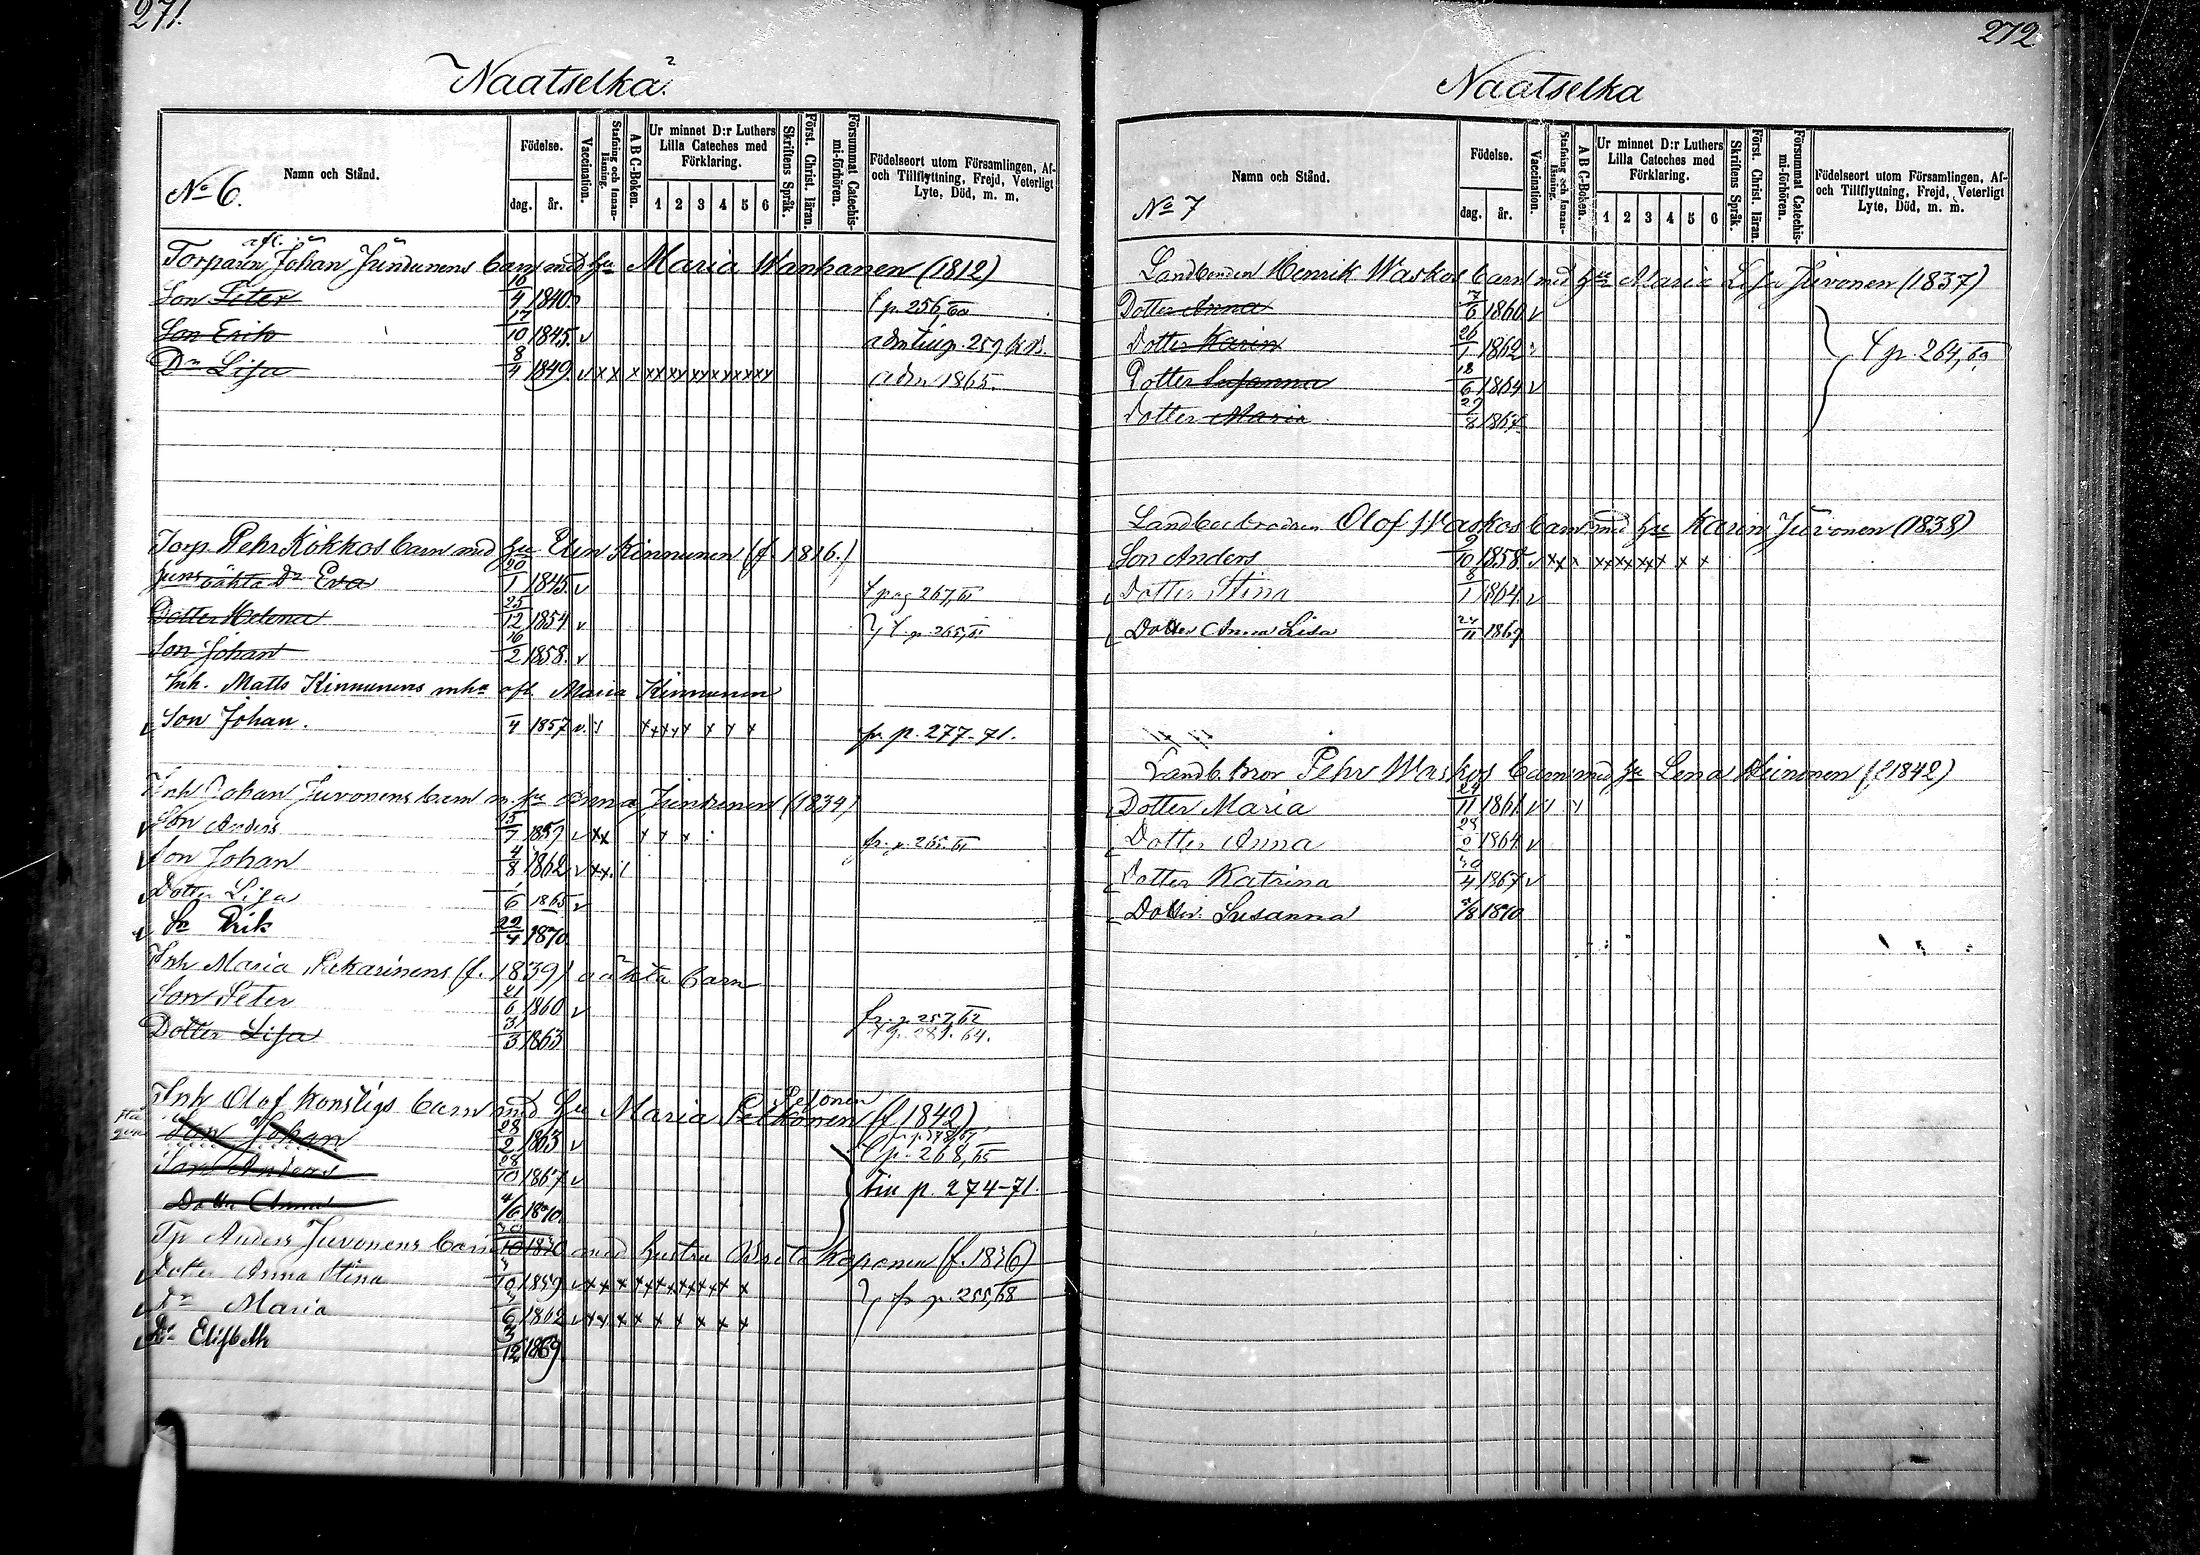 271.
Naatselkä
No 6.
Namn och Stånd.
Födelse.
dag. år.
Vaccination.
Stafning och Innan-läsning.
A B C-Boken.
Ur minnet D:r Luthers Lilla Cateches med Förklaring.
1 2 3 4 5 6
Skriftens Språk.
Först. Christ. läran.
Försummat Catechis-mi-förhören.
Födelseort utom Församlingen, Af- och Tillflyttning, Frejd, Veterligt Lyte, Död, m. m.
Torparen afl. Johan Junttunens barn med hu Maria Wanhanen (1812)
Son Peter 16/4 1840. p. 256,60
Son Erik 17/10 1845. v adm tiig. 259 K.B.
Dr Lisa 8/4 1849. v x x x xx xv xy xx xx xy adm 1865.
Torp. Pehr Kokkos barn med hu Elin Kinnunen (f. 1816.)
hens oäkta dr Eva 20/1 1845. v f pag 267,61
Dotter Helena 25/12 1854. v } f. p. 265,61
Son Johan 16/2 1858. v
Inh. Matts Kinnunens m. ha afl. Maria Kinnunen
Son Johan. /4 1857 v. fr. p. 277-71.
Inh Johan Juvonens barn m. hu Anna Junttunen (1834)
Son Anders 15/7 1859 v xx x x x fr. p. 265.61
Son Johan 4/8 1862 v xx.
Dotter Lisa /6 1865 v
Sn Erik 22/4 1870
Inh Maria Pekarinens (f. 1839) oäkta barn
Son Peter 21/6 1860 v fr. p. 257,62
Dotter Lisa 3/3 1863 f p. 281. 64.
Inh Olof Konstigs barn med hu Maria Pelkonen (f 1842)
Son Johan 28/2 1863 v p. 268,65
Son Anders 28/10 1867 v tiu p. 274-71.
Dotter Anna 4/6 1870.
Tp Anders Juvonens barn med hustru Brita Kaponen (f. 1836)
Dotter Anna Stina /10 1859 v x x x x x x x x x x } fr p. 255,68
Dr Maria /6 1862 v x x x x x x x x x
Dr Elisbeth 3/12 1869.
272
Naatselka
No 7
Namn och Stånd.
Födelse.
dag. år.
Vaccination.
Stafning och Innan-läsning.
A B C-Boken.
Ur minnet D:r Luthers Lilla Cateches med Förklaring.
1 2 3 4 5 6
Skriftens Språk.
Först. Christ. läran.
Försummat Catechis-mi-förhören.
Födelseort utom Församlingen, Af- och Tillflyttning, Frejd, Veterligt Lyte, Död, m. m.
Landbonden Henrik Waskos barn med hu Maria Lisa Juvonen (1837)
Dotter Anna 7/6 1860 v
Dotter Karin 26/1 1862 v f p. 264,69
Dotter Susanna 18/6 1864 v
Dotter Maria 29/8 1867
Landbobrodren Olof Waskos barn med hu Karin Juvonen (1838)
Son Anders 9/10 1858. v xx x xx xx xx x x
Dotter Stina 8/1 1864. v
Dotter Anna Lisa 24/11 1869
Landb. bror Pehr Waskos barn med hu Lena Heinonen (f 1842)
Dotter Maria 24/11 1861. v
Dotter Anna 28/2 1864 v
Dotter Katrina 30/4 1867 v
Dotter Susanna /8 1870